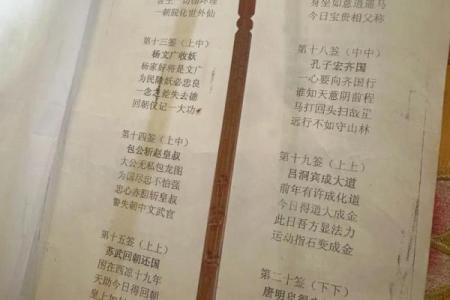 一朝脱化世外仙
第十三签（上中）
杨文广收妖
杨家好将是文广
为民除妖必忠良
一念之差失去德
回朝仅记一大功
第十四签（上中）
包公斩赵皇叔
大公无私包龙图
为国尽忠不怕强
忠心赤胆斩皇叔
警失朝中文武官
第十五签（上上）
苏武回朝还国
困在西凉十九年
天助今日得回朝
今日宝贵相父称
第十八签（中中）
孔子宏齐国
一心要向齐国行
谁知天意阴前程
马打回头扫故
远行不如守山林
第十九签（上上）
吕洞宾成大道
前年有许成化道
今日得道人成金
此日吾方显法力
运动指石变成金
第二十签（下下）